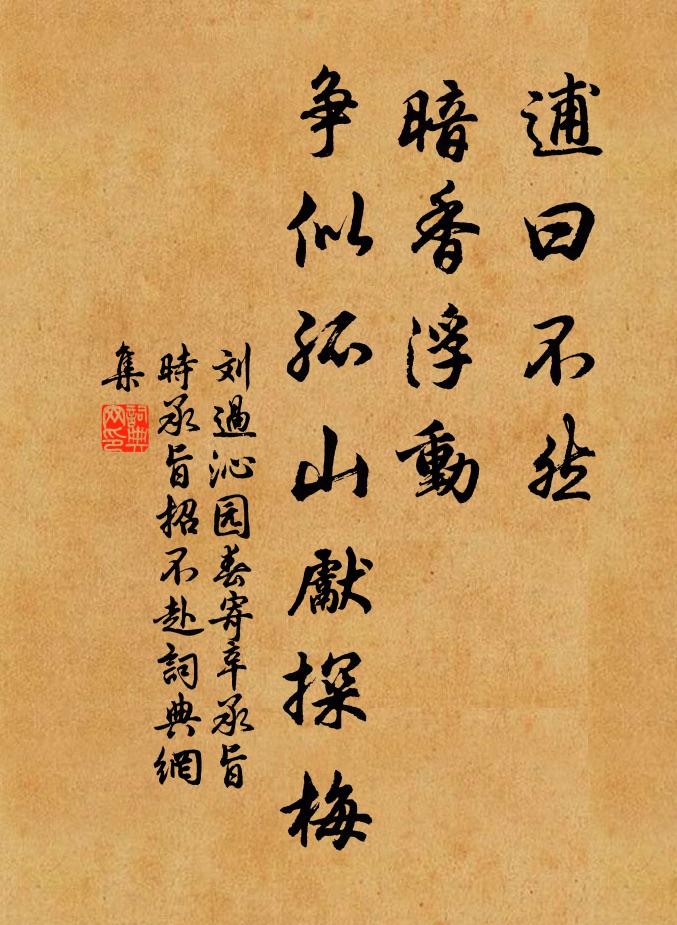 逋曰不然
暗香浮動
争似孤山獻探梅
刘過沁园春寄辛承旨
時承旨招不赴詞典網
集
詞典
网印